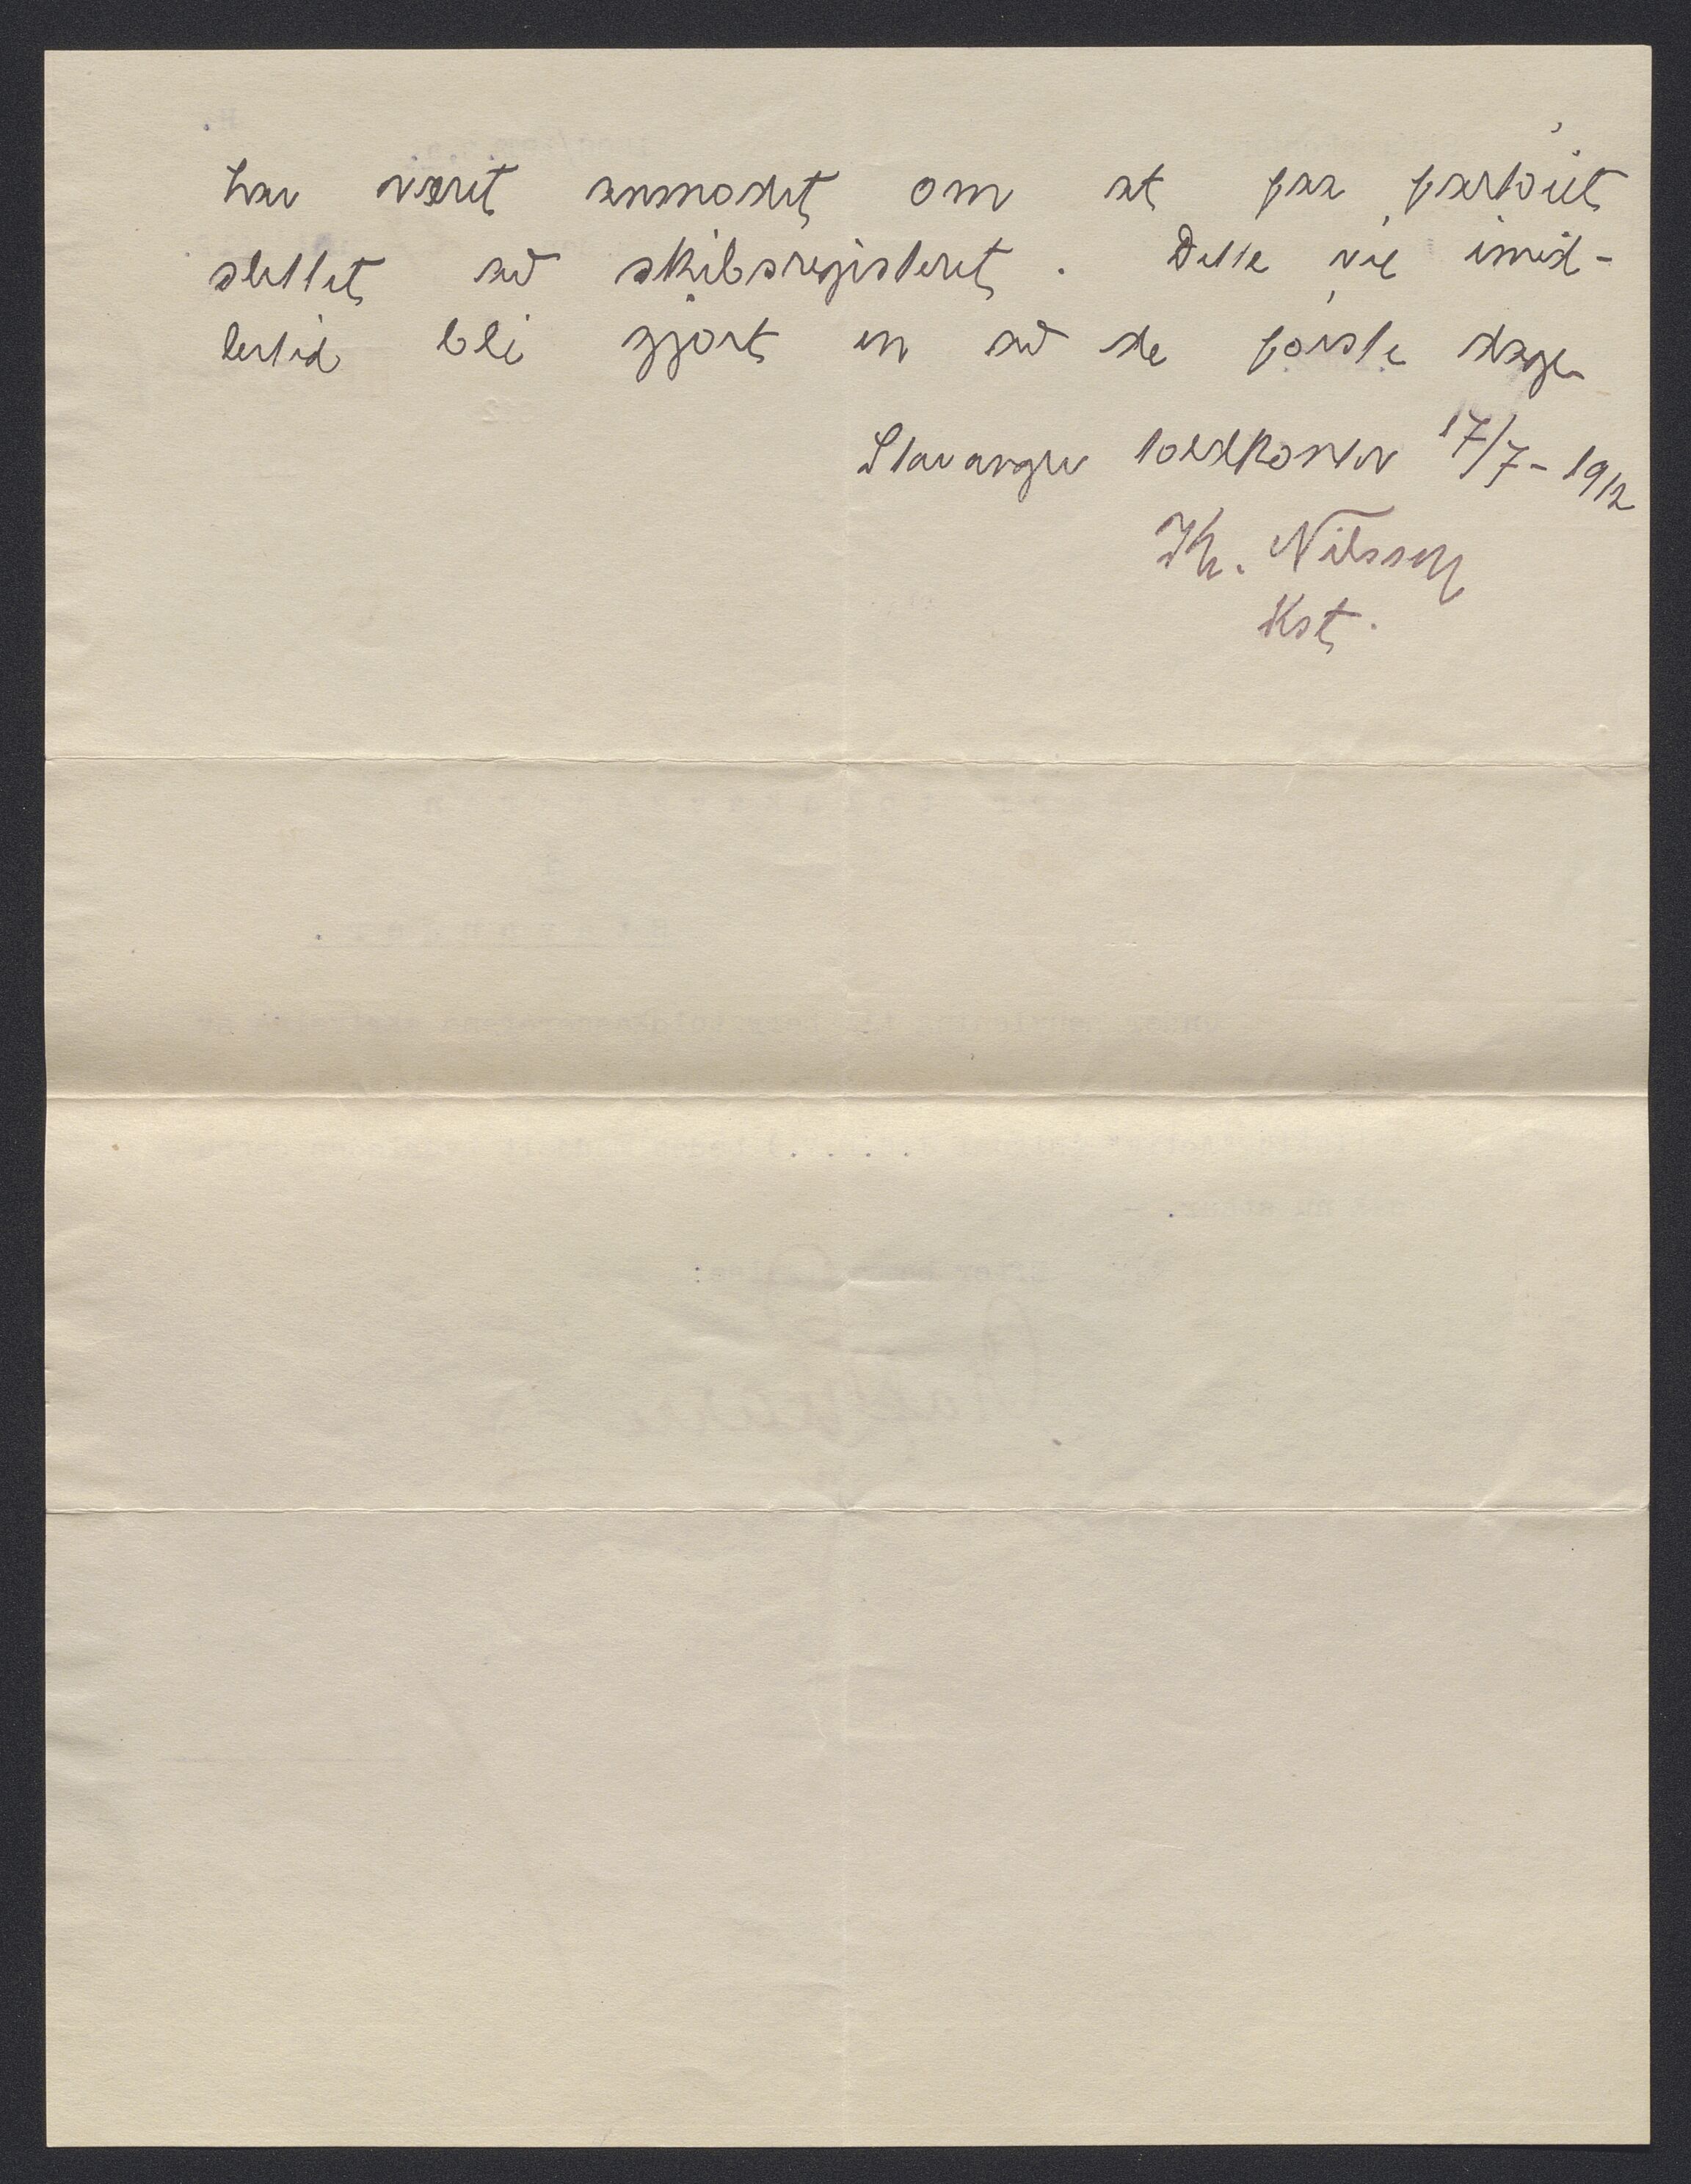 har været anmodet om at faa fartøiet
slettet av skibsregisteret. Dette vil imid-
lertid bli gjort en av de første dage
Stavanger toldkontor 17/7-1912
Th. Nilssen
Kst.